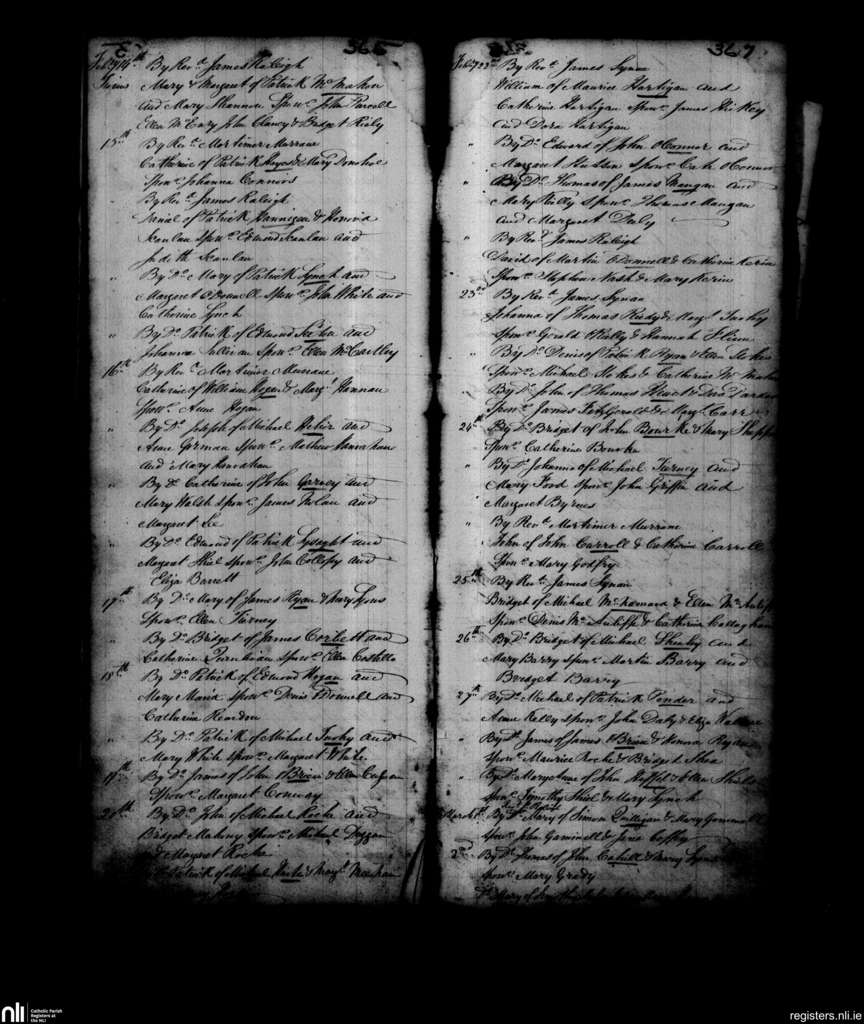 365
Feby 14th By Revd. James Raleigh
Twins Mary & Margaret of Patrick McMahon
and Mary Shannon Sponr. John Purcell
Ellen McEvoy John Clancy & Bridget Kiely
15th By Revd. Mortimer Murrane
Catherine of Patrick Hayes & Mary Donohoe
Sponr. Johanna Connors
" By Revd. James Raleigh
Daniel of Patrick Hannigan & Honora
Scanlan Sponr. Edmond Scanlan and
Judith Scanlan
" By Do. Mary of Patrick Lynch and
Margaret O'Donnell Sponr. John White and
Catherine Lynch
" By Do. Patrick of Edmond and
Johanna Sullivan Sponr. Ellen McCarthy
16th By Revd. Mortimer Murrane
Catherine of William Hogan & Margt. Hannan
Sponr. Anne Hogan
" By Do. Joseph of Michael and
Anne Gorman Sponr. Mathew Hanrahan
and Mary Hanrahan
" By Do. Catherine of John Garvey and
Mary Walsh Sponr. James Nolan and
Margaret Lee
" By Do. Edmond of Patrick Lysaght and
Margaret Shiel Sponr. John Collopy and
Eliza Barrett
17th By Do. Mary of James Ryan & Mary Lyons
Sponr. Ellen Furney
" By Do. Bridget of James Corbett and
Catherine Quinlivan Sponr. Ellen Costello
18th By Do. Patrick of Edmond Hogan and
Mary Maria Sponr. Denis O'Donnell and
Catherine Reardon
" By Do. Patrick of Michael Tuohy and
Mary White Sponr. Margaret White
19th By Do. James of John OBrien & Ellen
Sponr. Margaret Conway
20th By Do. John of Michael Roche and
Bridget Mahony Sponr. Michael Duggan
& Margaret Roche
Patrick of Michael & Margt. Meehan
367
Feby 22nd By Revd. James Synan
William of Maurice Hartigan and
Catherine Hartigan Sponr. James Hickey
and Dora Hartigan
" By Do. Edward of John OConnor and
Margaret Sponr. Cath OConnor
" By Do. Thomas of James Mangan and
Mary Kelly Sponr. Thomas Mangan
and Margaret Daly
" By Revd. James Raleigh
David of Martin ODonnell & Catherine Kerin
Sponr. Stephen Nash & Mary Kerin
23rd By Revd. James Synan
Johanna of Thomas & Margt. Tuohy
Sponr. Gerald OKelly & Hannah Flinn
" By Do. Denis of Patrick Ryan & Ellen Stokes
Sponr. Michael Stokes & Catherine McMahon
" By Do. John of Thomas &
Sponr. James FitzGerald & Mary Carr
24th By Do. Bridget of John Bourke & Mary
Sponr. Catherine Bourke
" By Do. Johanna of Michael Furney and
Mary Ford Sponr. John Griffin and
Margaret Byrnes
" By Revd. Mortimer Murrane
John of John Carroll & Catherine Carroll
Sponr. Mary Godfry
25th By Revd. James Synan
Bridget of Michael McNamara & Ellen McAuliffe
Sponr. Denis McAuliffe & Catherine Callaghan
26th By Do. Bridget of Michael Sheehy and
Mary Barry Sponr. Martin Barry and
Bridget Barry
27th By Do. Michael of Patrick Ponder and
Anne Kelly Sponr. John Daly & Eliza Wallace
" By Do. James of James OBrien & Honora
Sponr. Maurice Roche & Bridget Shea
" By Do. Mary Anne of John & Ellen
Sponr. Timothy Shiel & Mary Lynch
March 1st By Do. Mary of Simon Quilligan & Mary
Sponr. John & Jane Coffey
2nd By Do. James of John Cahill & Mary Lyons
Sponr. Mary Grady
nli
Catholic Parish
Registers at
the NLI
registers.nli.ie